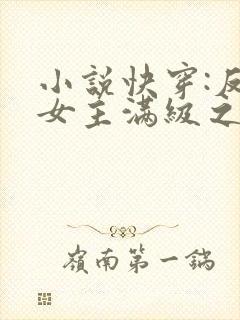 小説快穿:反
女主滿級之
嶺南第一鍋